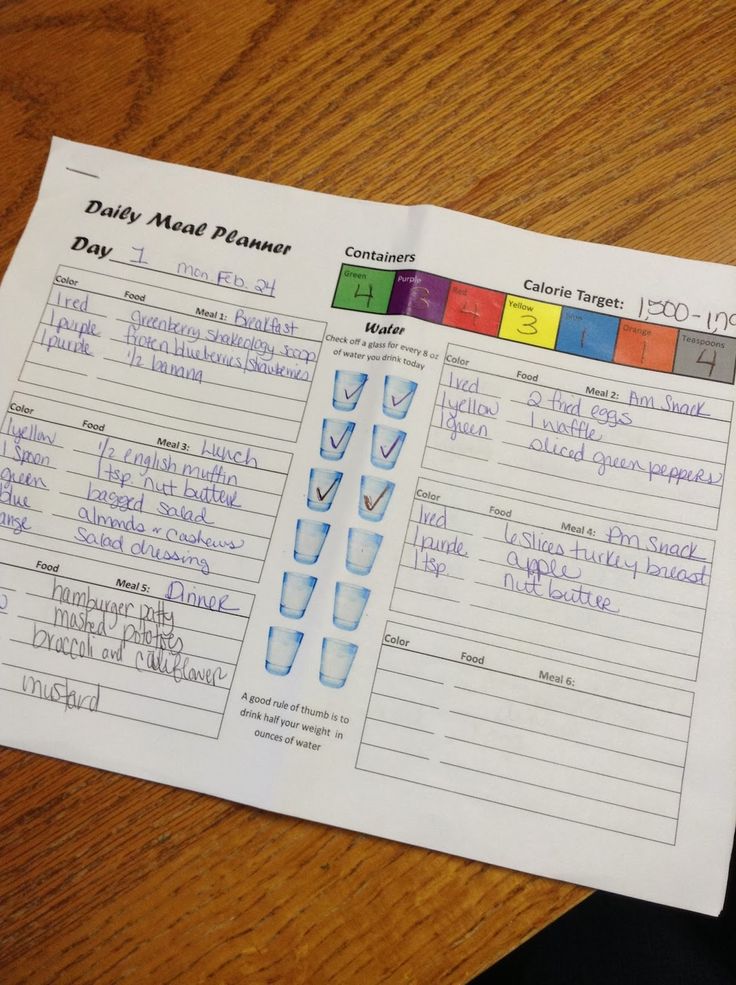 Daily Meal Planner
Day 1 mon. Feb. 24
Containers
Calorie Target: 1,500-179
Green Purple Red Yellow Blue Orange Teaspoons
4 3 4 3 1 1 4
Color Food Meal 1: Breakfast
1 red greenberry shakeology scoop
1 purple frozen blueberries/strawberries
1 purple 1/2 banana
Water
Check off a glass for every 8 oz
of water you drink today
Color Food Meal 2: Am Snack
1 red 2 fried eggs
1 yellow 1 waffle
1 green sliced green peppers
Color Food Meal 3: Lunch
1 yellow 1/2 english muffin
1 spoon 1 tsp. nut butter
green bagged salad
blue almonds or cashews
ange salad dressing
Color Food Meal 4: Pm Snack
1 red 6 slices turkey breast
1 purple apple
1 tsp. nut butter
Food Meal 5: Dinner
hamburger patty
mashed potatoes
broccoli and cauliflower
mustard
Color Food Meal 6:
A good rule of thumb is to
drink half your weight in
ounces of water